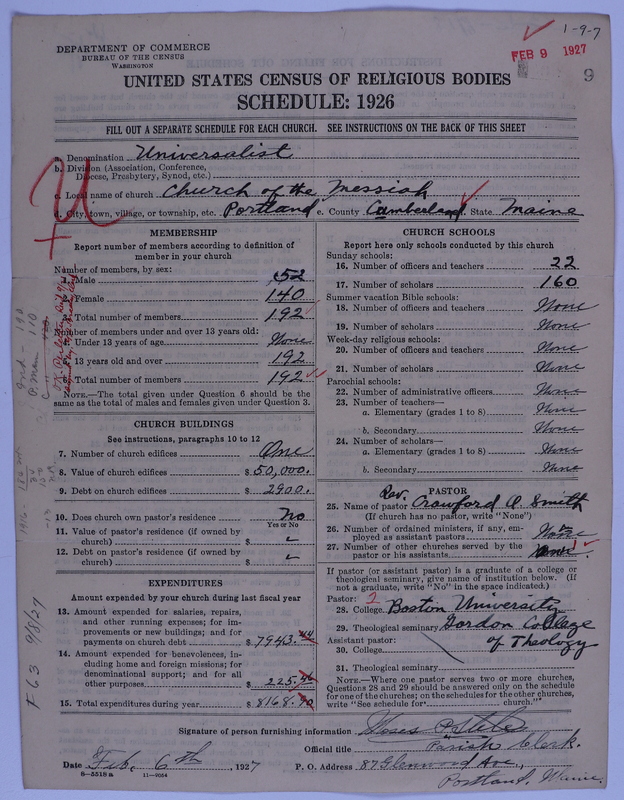 1-9-7
FEB 9 1927
9
DEPARTMENT OF COMMERCE
BUREAU OF THE CENSUS
WASHINGTON
UNITED STATES CENSUS OF RELIGIOUS BODIES
SCHEDULE: 1926
FILL OUT A SEPARATE SCHEDULE FOR EACH CHURCH. SEE INSTRUCTIONS ON THE BACK OF THIS SHEET
a. Denomination Universalist
b. Division (Association, Conference, Diocese, Presbytery, Synod, etc.)
c. Local name of church Church of the Messiah
d. City, town, village, or township, etc. Portland e. County Cumberland State Maine
MEMBERSHIP
Report number of members according to definition of member in your church
Number of members, by sex:
1. Male 52
2. Female 140
3. Total number of members 192
Number of members under and over 13 years old:
4. Under 13 years of age None
5. 13 years old and over 192
6. Total number of members 192
NOTE.—The total given under Question 6 should be the same as the total of males and females given under Question 3.
CHURCH BUILDINGS
See instructions, paragraphs 10 to 12
7. Number of church edifices One
8. Value of church edifices $ 50,000.
9. Debt on church edifices $ 2900.
10. Does church own pastor's residence No
Yes or No
11. Value of pastor's residence (if owned by church) $
12. Debt on pastor's residence (if owned by church) $
EXPENDITURES
Amount expended by your church during last fiscal year
13. Amount expended for salaries, repairs, and other running expenses; for improvements or new buildings; and for payments on church debt $ 7943.44
14. Amount expended for benevolences, including home and foreign missions; for denominational support; and for all other purposes $ 225.46
15. Total expenditures during year $ 8168.90
CHURCH SCHOOLS
Report here only schools conducted by this church
Sunday schools:
16. Number of officers and teachers 22
17. Number of scholars 160
Summer vacation Bible schools:
18. Number of officers and teachers None
19. Number of scholars None
Week-day religious schools:
20. Number of officers and teachers None
21. Number of scholars None
Parochial schools:
22. Number of administrative officers None
23. Number of teachers—
a. Elementary (grades 1 to 8) None
b. Secondary None
24. Number of scholars—
a. Elementary (grades 1 to 8) None
b. Secondary None
PASTOR
25. Name of pastor Rev. Crawford O. Smith
(If church has no pastor, write "None")
26. Number of ordained ministers, if any, employed as assistant pastors None
27. Number of other churches served by the pastor or his assistants 1
If pastor (or assistant pastor) is a graduate of a college or theological seminary, give name of institution below. (If not a graduate, write "No" in the space indicated.)
Pastor: 2
28. College Boston University
29. Theological seminary Gordon College of Theology
Assistant pastor:
30. College
31. Theological seminary
NOTE.—Where one pastor serves two or more churches, Questions 28 and 29 should be answered only on the schedule for one of the churches; on the schedules for the other churches, write "See schedule for church."
Signature of person furnishing information Moses P. Stiles
Official title Parish Clerk.
Date Feb. 6th, 1927 P. O. Address 87 Glenwood Ave.,
Portland, Maine.
8-5518a 11-9054
F63 9/8/27